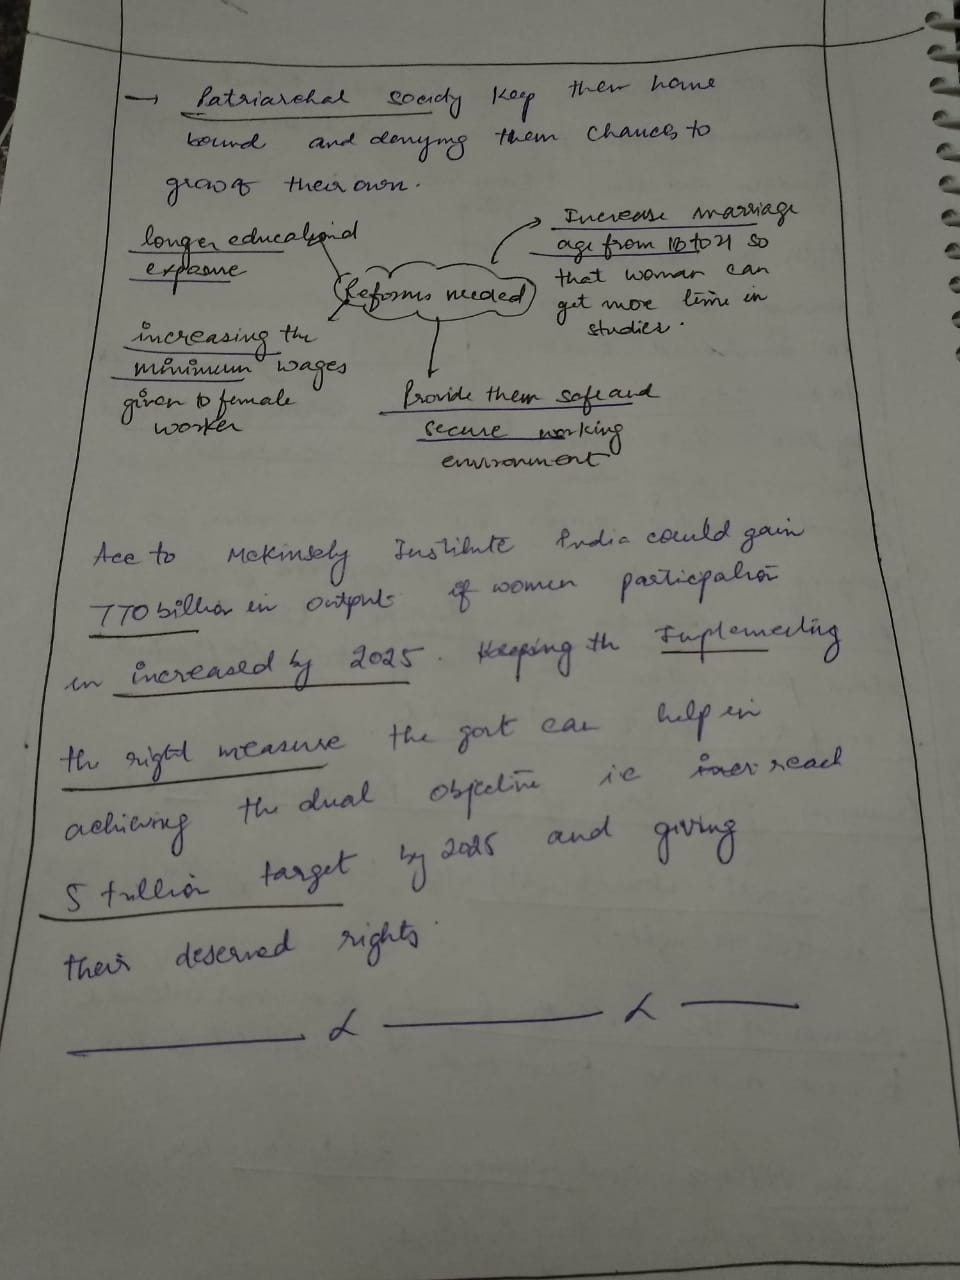 → Patriarchal society keep them home
bound and denying them chances to
grow of their own.
longer educational
exposure
Reforms needed
Increase marriage
age from 18 to 21 so
that woman can
get more time in
studies.
increasing the
minimum wages
given to female
worker
Provide them safe and
secure working
environment
Acc to Mckinsely Institute India could gain
770 billion in outputs if women participation
in increased by 2025. Keeping th Implementing
th right measure the govt can help in
achieving the dual objective ie reach
5 trillion target by 2025 and giving
their deserved rights.